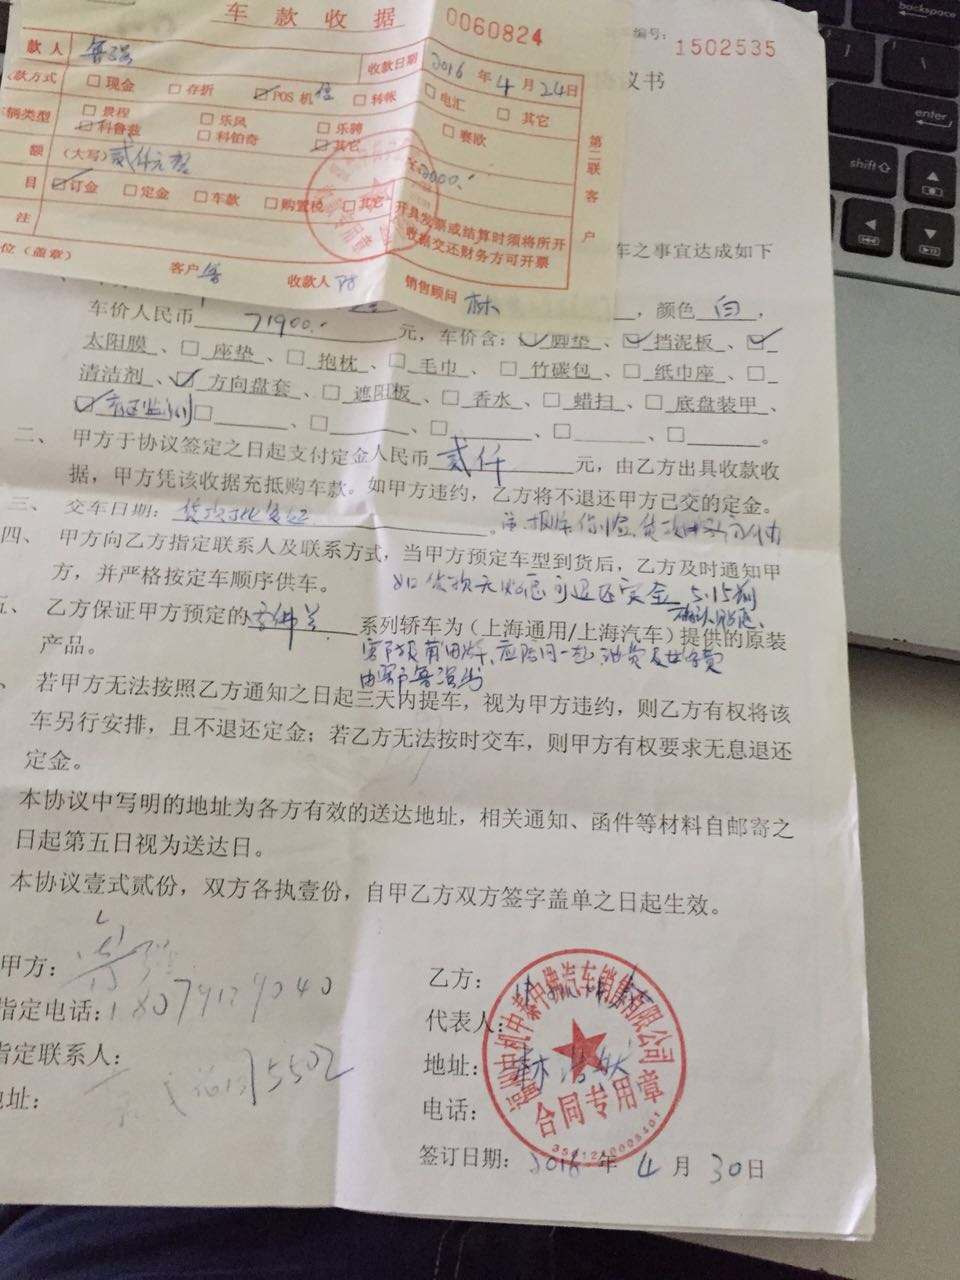 车款收据
0060824
编号：
1502535
议书
款人
收款日期 2016 年 4 月 24 日
款方式 □现金 □存折 ☑POS机 □转帐 □电汇 □其它
辆类型 □景程 □乐风 □乐骋 □赛欧
☑科鲁兹 □科伯奇 □其它
额 (大写) 贰仟元整 ¥2000.-
目 ☑订金 □定金 □车款 □购置税 □其它
开具发票或结算时须将所开
收据交还财务方可开票
注
位（盖章） 客户 鲁 收款人 销售顾问 林
第二联 客户
车之事宜达成如下
，颜色 白 ，
车价人民币 71900.- 元，车价含：☑脚垫、☑挡泥板、☑
太阳膜、□座垫、□抱枕、□毛巾、□竹碳包、□纸巾座、□
清洁剂、☑方向盘套、□遮阳板、□香水、□蜡扫、□底盘装甲、
☑ □ 、□ 、□ 、□ 、□ 。
二、 甲方于协议签定之日起支付定金人民币 贰仟 元，由乙方出具收款收
据，甲方凭该收据充抵购车款。如甲方违约，乙方将不退还甲方已交的定金。
三、 交车日期： 。
四、 甲方向乙方指定联系人及联系方式，当甲方预定车型到货后，乙方及时通知甲
方，并严格按定车顺序供车。
可退还定金 5.15前
五、 乙方保证甲方预定的 系列轿车为（上海通用/上海汽车）提供的原装
产品。
、 若甲方无法按照乙方通知之日起三天内提车，视为甲方违约，则乙方有权将该
车另行安排，且不退还定金；若乙方无法按时交车，则甲方有权要求无息退还
定金。
本协议中写明的地址为各方有效的送达地址，相关通知、函件等材料自邮寄之
日起第五日视为送达日。
本协议壹式贰份，双方各执壹份，自甲乙方双方签字盖单之日起生效。
甲方：
指定电话：18079129040
指定联系人：
5502
地址：
乙方：
代表人：
地址：
电话：
合同专用章
签订日期： 2016 年 4 月 30 日